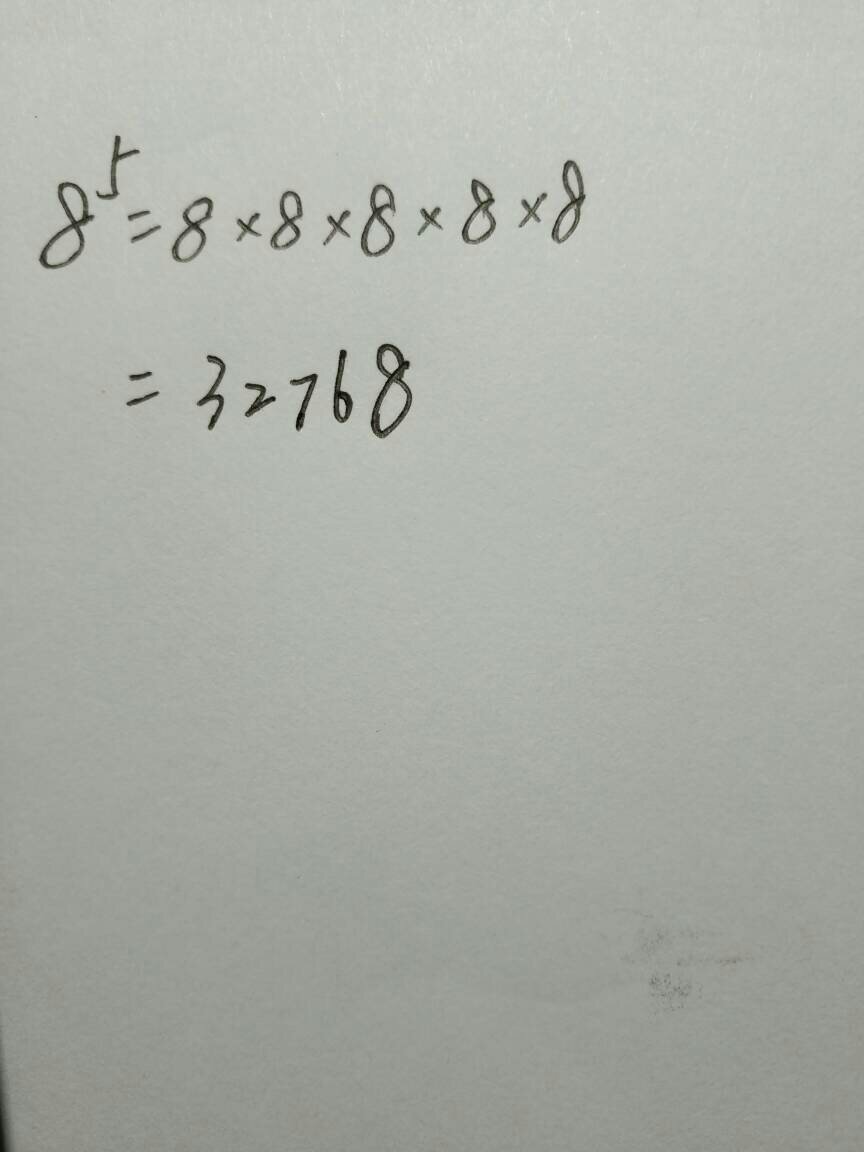 8⁵=8×8×8×8×8
=32768